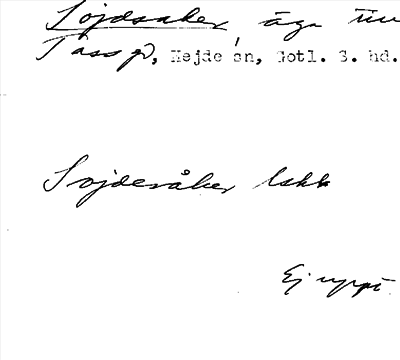 Sojdsaker, äga un
Tass gd, Hejde sn, Gotl. S. hd.
Sojdesåker lskk
Ej uppt.